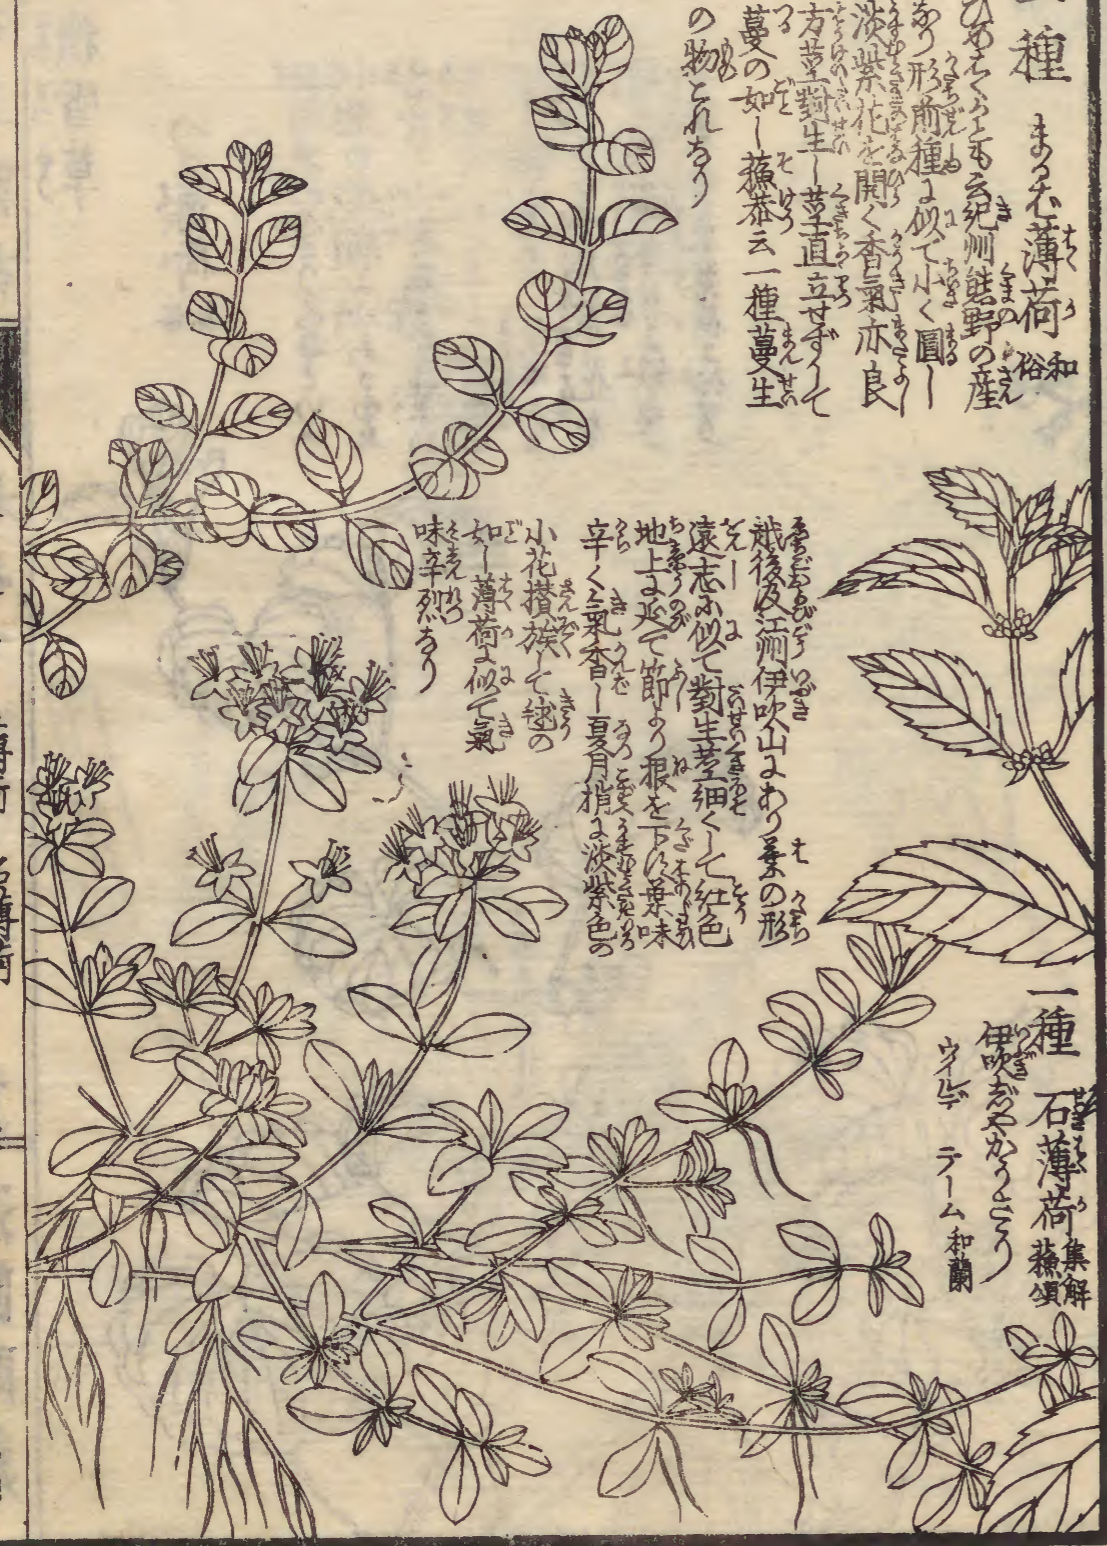 一種 まるば薄荷 和俗
ひめはくかとも云紀州熊野の産
なり形前種に似て小く圓し
淡紫花を開く香氣亦良
方莖對生し莖直立せずして
蔓の如し蘓恭云一種蔓生
の物これなり
一種 石薄荷 集解 蘓頌
伊吹じやかうさう
ウイルデ テーム 和蘭
越後及江州伊吹山にあり葉の形
遠志に似て對生莖細くして紅色
地上に延て節より根を下す葉味
辛く氣香し夏月梢に淡紫色の
小花攅族して毬の
如し薄荷に似て氣
味辛烈なり